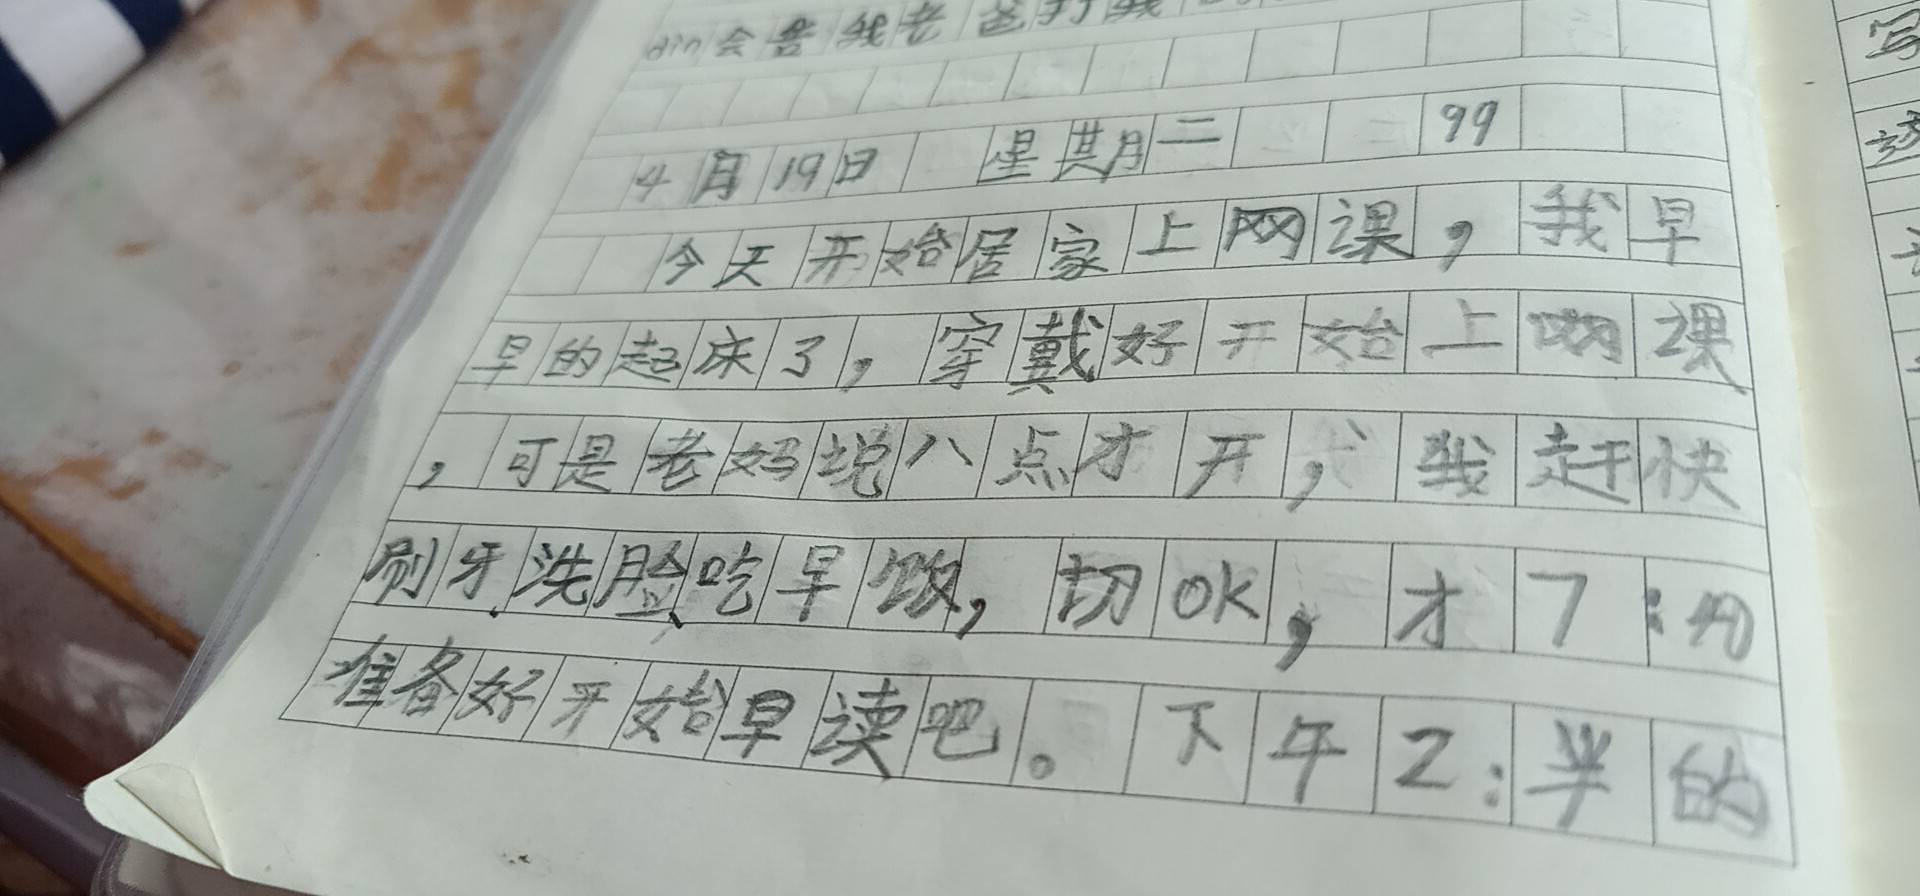 din会告我老爸打我
4月19日 星期二 99
今天开始居家上网课，我早
早的起床了，穿戴好开始上网课
，可是老妈说八点才开，我赶快
刷牙、洗脸、吃早饭，切OK，才7：
准备好开始早读吧。下午2：半的
写